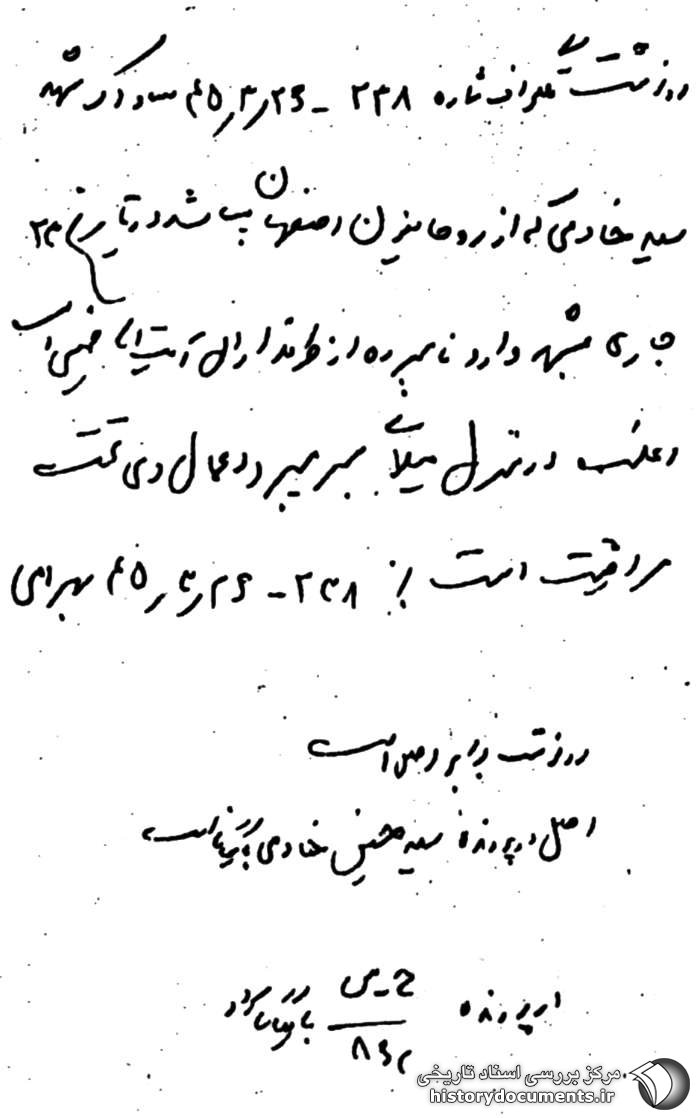 رونوشت تلگراف شماره ۲۳۸ - ۴۵٫۳٫۲۶ ساواک مشهد
سید خادمی که از روحانیون اصفهان میباشد در تاریخ ۲۳
جاری بمشهد وارد نامبرده از طرفداران آیت اله خمینی است
و اغلب در منزل میلانی بسر میبرد و اعمال وی تحت
مراقبت است ۲۳۸ - ۴۵٫۳٫۲۶ بهرامی
رونوشت برابر اصل است
اصل در پرونده سید حسین خادمی بایگانی است
در پرونده بایگانی گردد
مرکز بررسی اسناد تاریخی
historydocuments.ir